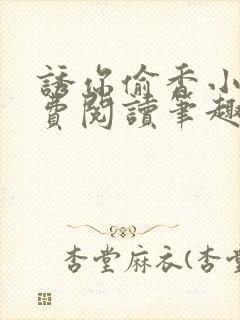 誘你偷香小
費閱讀筆趣
杏堂麻衣(杏堂